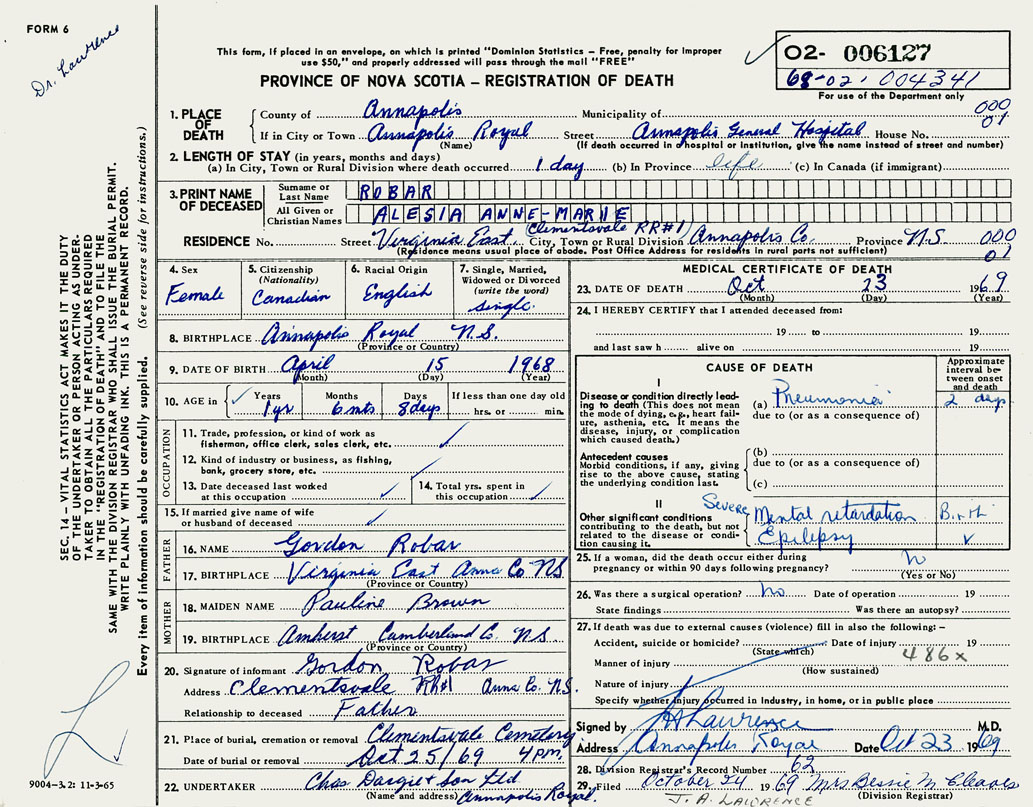 FORM 6
Dr. Lawrence
This form, if placed in an envelope, on which is printed "Dominion Statistics — Free, penalty for improper
use $50," and properly addressed will pass through the mail "FREE"
PROVINCE OF NOVA SCOTIA – REGISTRATION OF DEATH
02- 006127
68-02. 004341
For use of the Department only
000
01
1. PLACE OF DEATH County of Annapolis Municipality of
If in City or Town Annapolis Royal Street Annapolis General Hospital House No.
(Name) (If death occurred in a hospital or institution, give the name instead of street and number)
2. LENGTH OF STAY (in years, months and days)
(a) In City, Town or Rural Division where death occurred 1 day (b) In Province life (c) In Canada (if immigrant)
3. PRINT NAME OF DECEASED Surname or Last Name ROBAR
All Given or Christian Names ALESIA ANNE-MARIE
Clementsvale RR#1
RESIDENCE No. Street Virginia East City, Town or Rural Division Annapolis Co. Province N.S.
(Residence means usual place of abode. Post Office Address for residents in rural parts not sufficient)
000
01
4. Sex Female
5. Citizenship (Nationality) Canadian
6. Racial Origin English
7. Single, Married, Widowed or Divorced (write the word) single
8. BIRTHPLACE Annapolis Royal N.S.
(Province or Country)
9. DATE OF BIRTH April 15 1968
(Month) (Day) (Year)
10. AGE in Years Months Days If less than one day old
1yr 6 mts 8 days hrs. or min.
OCCUPATION
11. Trade, profession, or kind of work as
fisherman, office clerk, sales clerk, etc.
12. Kind of industry or business, as fishing,
bank, grocery store, etc.
13. Date deceased last worked
at this occupation
14. Total yrs. spent in
this occupation
15. If married give name of wife
or husband of deceased
FATHER
16. NAME Gordon Robar
17. BIRTHPLACE Virginia East Anna Co NS
(Province or Country)
MOTHER
18. MAIDEN NAME Pauline Brown
19. BIRTHPLACE Amherst Cumberland Co. N.S.
(Province or Country)
20. Signature of informant Gordon Robar
Address Clementsvale RR#1 Anna Co. N.S.
Relationship to deceased Father
21. Place of burial, cremation or removal Clementsvale Cemetery
Date of burial or removal Oct 25/69 4pm.
22. UNDERTAKER Chas Dargie & Son Ltd
(Name and address) Annapolis Royal.
MEDICAL CERTIFICATE OF DEATH
23. DATE OF DEATH Oct 23 1969
(Month) (Day) (Year)
24. I HEREBY CERTIFY that I attended deceased from:
19 to 19
and last saw h alive on 19
CAUSE OF DEATH
Approximate interval between onset and death
I
Disease or condition directly leading to death (This does not
mean the mode of dying, e.g., heart failure, asthenia, etc. It means the
disease, injury, or complication
which caused death.)
(a) Pneumonia 2 days
due to (or as a consequence of)
Antecedent causes
Morbid conditions, if any, giving
rise to the above cause, stating
the underlying condition last.
(b)
due to (or as a consequence of)
(c)
II
Other significant conditions
contributing to the death, but not
related to the disease or condition
causing it.
Severe Mental retardation Birth
Epilepsy
25. If a woman, did the death occur either during
pregnancy or within 90 days following pregnancy? No
(Yes or No)
26. Was there a surgical operation? No Date of operation 19
State findings Was there an autopsy?
27. If death was due to external causes (violence) fill in also the following: –
Accident, suicide or homicide? Date of injury 19
(State which)
486x
Manner of injury
(How sustained)
Nature of injury
Specify whether injury occurred in Industry, in home, or in public place
Signed by JA Lawrence M.D.
Address Annapolis Royal Date Oct 23 1969
28. Division Registrar's Record Number 62
29. Filed October 24 1969 Mrs Bessie M Cleaves
(Division Registrar)
J. A. LAWRENCE
SEC. 14 – VITAL STATISTICS ACT MAKES IT THE DUTY
OF THE UNDERTAKER OR PERSON ACTING AS UNDERTAKER
TO OBTAIN ALL THE PARTICULARS REQUIRED
IN THE "REGISTRATION OF DEATH" AND TO FILE THE
SAME WITH THE DIVISION REGISTRAR WHO SHALL ISSUE THE BURIAL PERMIT.
WRITE PLAINLY WITH UNFADING INK. THIS IS A PERMANENT RECORD.
Every item of information should be carefully supplied. (See reverse side for instructions.)
9004–3.2: 11-3-65